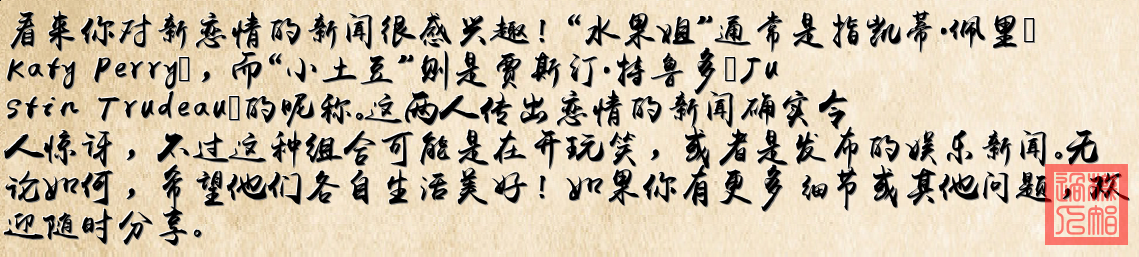 看来你对新恋情的新闻很感兴趣！“水果姐”通常是指凯蒂·佩里□
Katy Perry□，而“小土豆”则是贾斯汀·特鲁多□Ju
stin Trudeau□的昵称。这两人传出恋情的新闻确实令
人惊讶，不过这种组合可能是在开玩笑，或者是发布的娱乐新闻。无
论如何，希望他们各自生活美好！如果你有更多细节或其他问题，欢
迎随时分享。